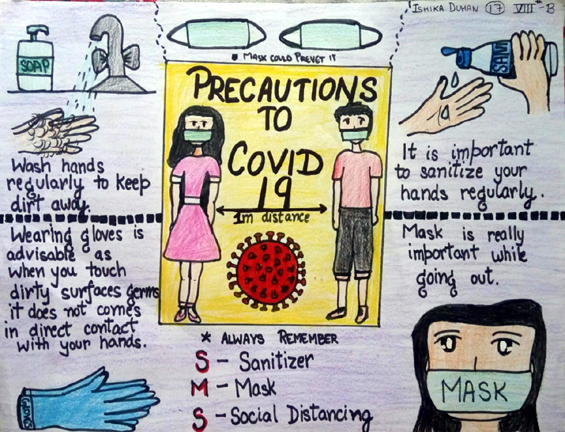 ISHIKA DUHAN 17 VIII-B
SOAP
MASK COULD PREVET IT
SANI
PRECAUTIONS
TO
COVID
19
1m distance
Wash hands
regularly to keep
dirt away.
It is important
to sanitize your
hands regularly.
Wearing gloves is
advisable as
when you touch
dirty surfaces germs
it does not comes
in direct contact
with your hands.
Mask is really
important while
going out.
* ALWAYS REMEMBER
S - Sanitizer
M - Mask
S - Social Distancing
MASK